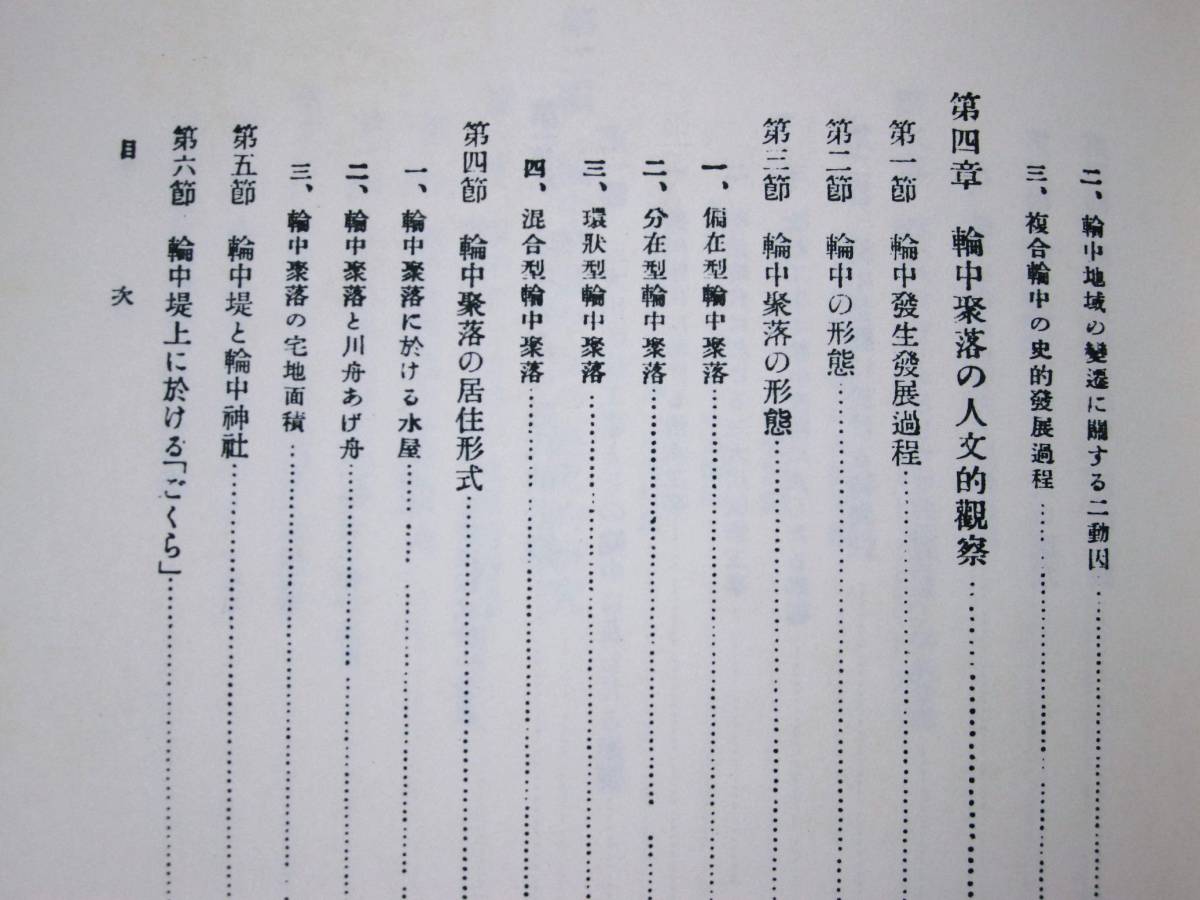 二、輪中地域の變遷に關する二動因
三、複合輪中の史的發展過程
第四章 輪中聚落の人文的觀察
第一節 輪中發生發展過程
第二節 輪中の形態
第三節 輪中聚落の形態
一、偏在型輪中聚落
二、分在型輪中聚落
三、環狀型輪中聚落
四、混合型輪中聚落
第四節 輪中聚落の居住形式
一、輪中聚落に於ける水屋
二、輪中聚落と川舟あげ舟
三、輪中聚落の宅地面積
第五節 輪中堤と輪中神社
第六節 輪中堤上に於ける「ごくら」
目次